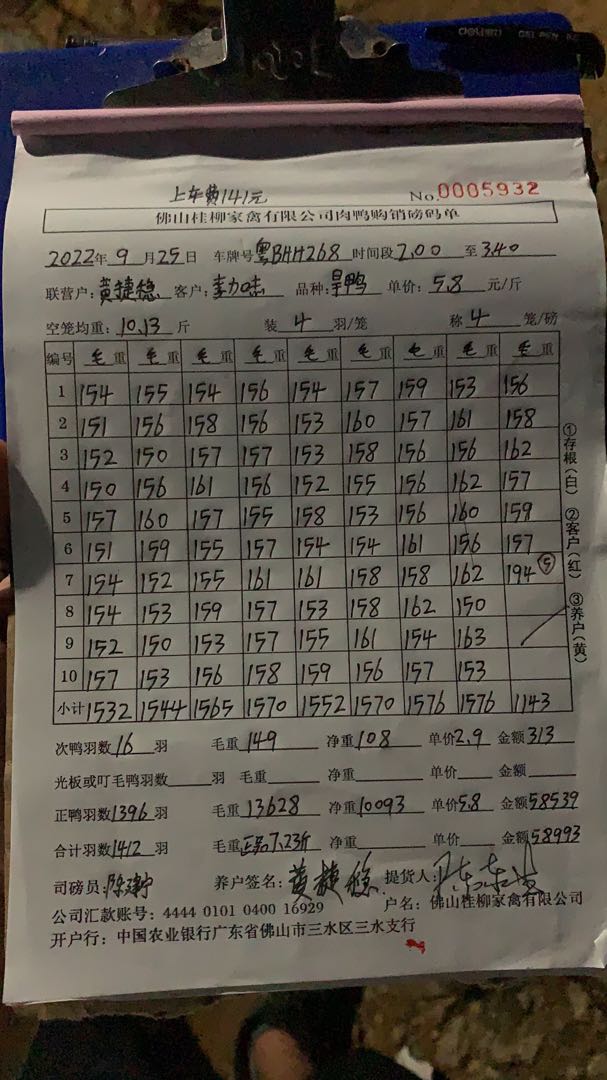 deli得力 GEL PEN
上车费141元
No.0005932
佛山桂柳家禽有限公司肉鸭购销磅码单
2022年9月25日 车牌号粤BHH268 时间段2.00至3.40
联营户：黄捷稳 客户：李加味 品种：旱鸭 单价：5.8 元/斤
空笼均重：10.13斤 装4羽/笼 称4笼/磅
编号 毛重 毛重 毛重 毛重 毛重 毛重 毛重 毛重 毛重
1 154 155 154 156 154 157 159 153 156
2 151 156 158 156 153 160 157 161 158
3 152 150 157 157 153 158 156 156 162
4 150 156 161 156 152 155 156 162 157
5 157 160 157 155 158 153 156 160 159
6 151 159 155 157 154 154 161 156 157
7 154 152 155 161 161 158 158 162 194⑤
8 154 153 159 157 153 158 162 150
9 152 150 153 157 155 161 154 163
10 157 153 156 158 159 156 157 153
小计 1532 1544 1565 1570 1552 1570 1576 1576 1143
①存根（白） ②客户（红） ③养户（黄）
次鸭羽数16羽 毛重149 净重108 单价2.9 金额313
光板或叮毛鸭羽数 羽 毛重 净重 单价 金额
正鸭羽数1396羽 毛重13628 净重10093 单价5.8 金额58539
合计羽数1412羽 毛重正品7.23斤 净重 单价 金额58993
司磅员： 养户签名：黄捷稳 提货人：
公司汇款账号：4444 0101 0400 16929 户名：佛山桂柳家禽有限公司
开户行：中国农业银行广东省佛山市三水区三水支行